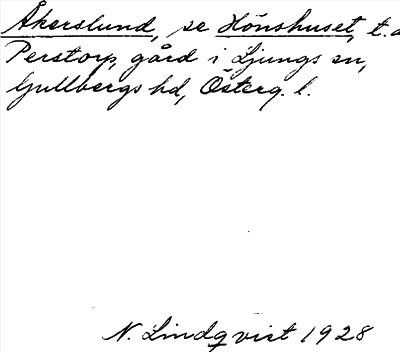 Åkerslund, se Hönshuset, t.
Perstorp, gård i Ljungs sn,
Gullbergs hd, Österg. l.
N. Lindqvist 1928